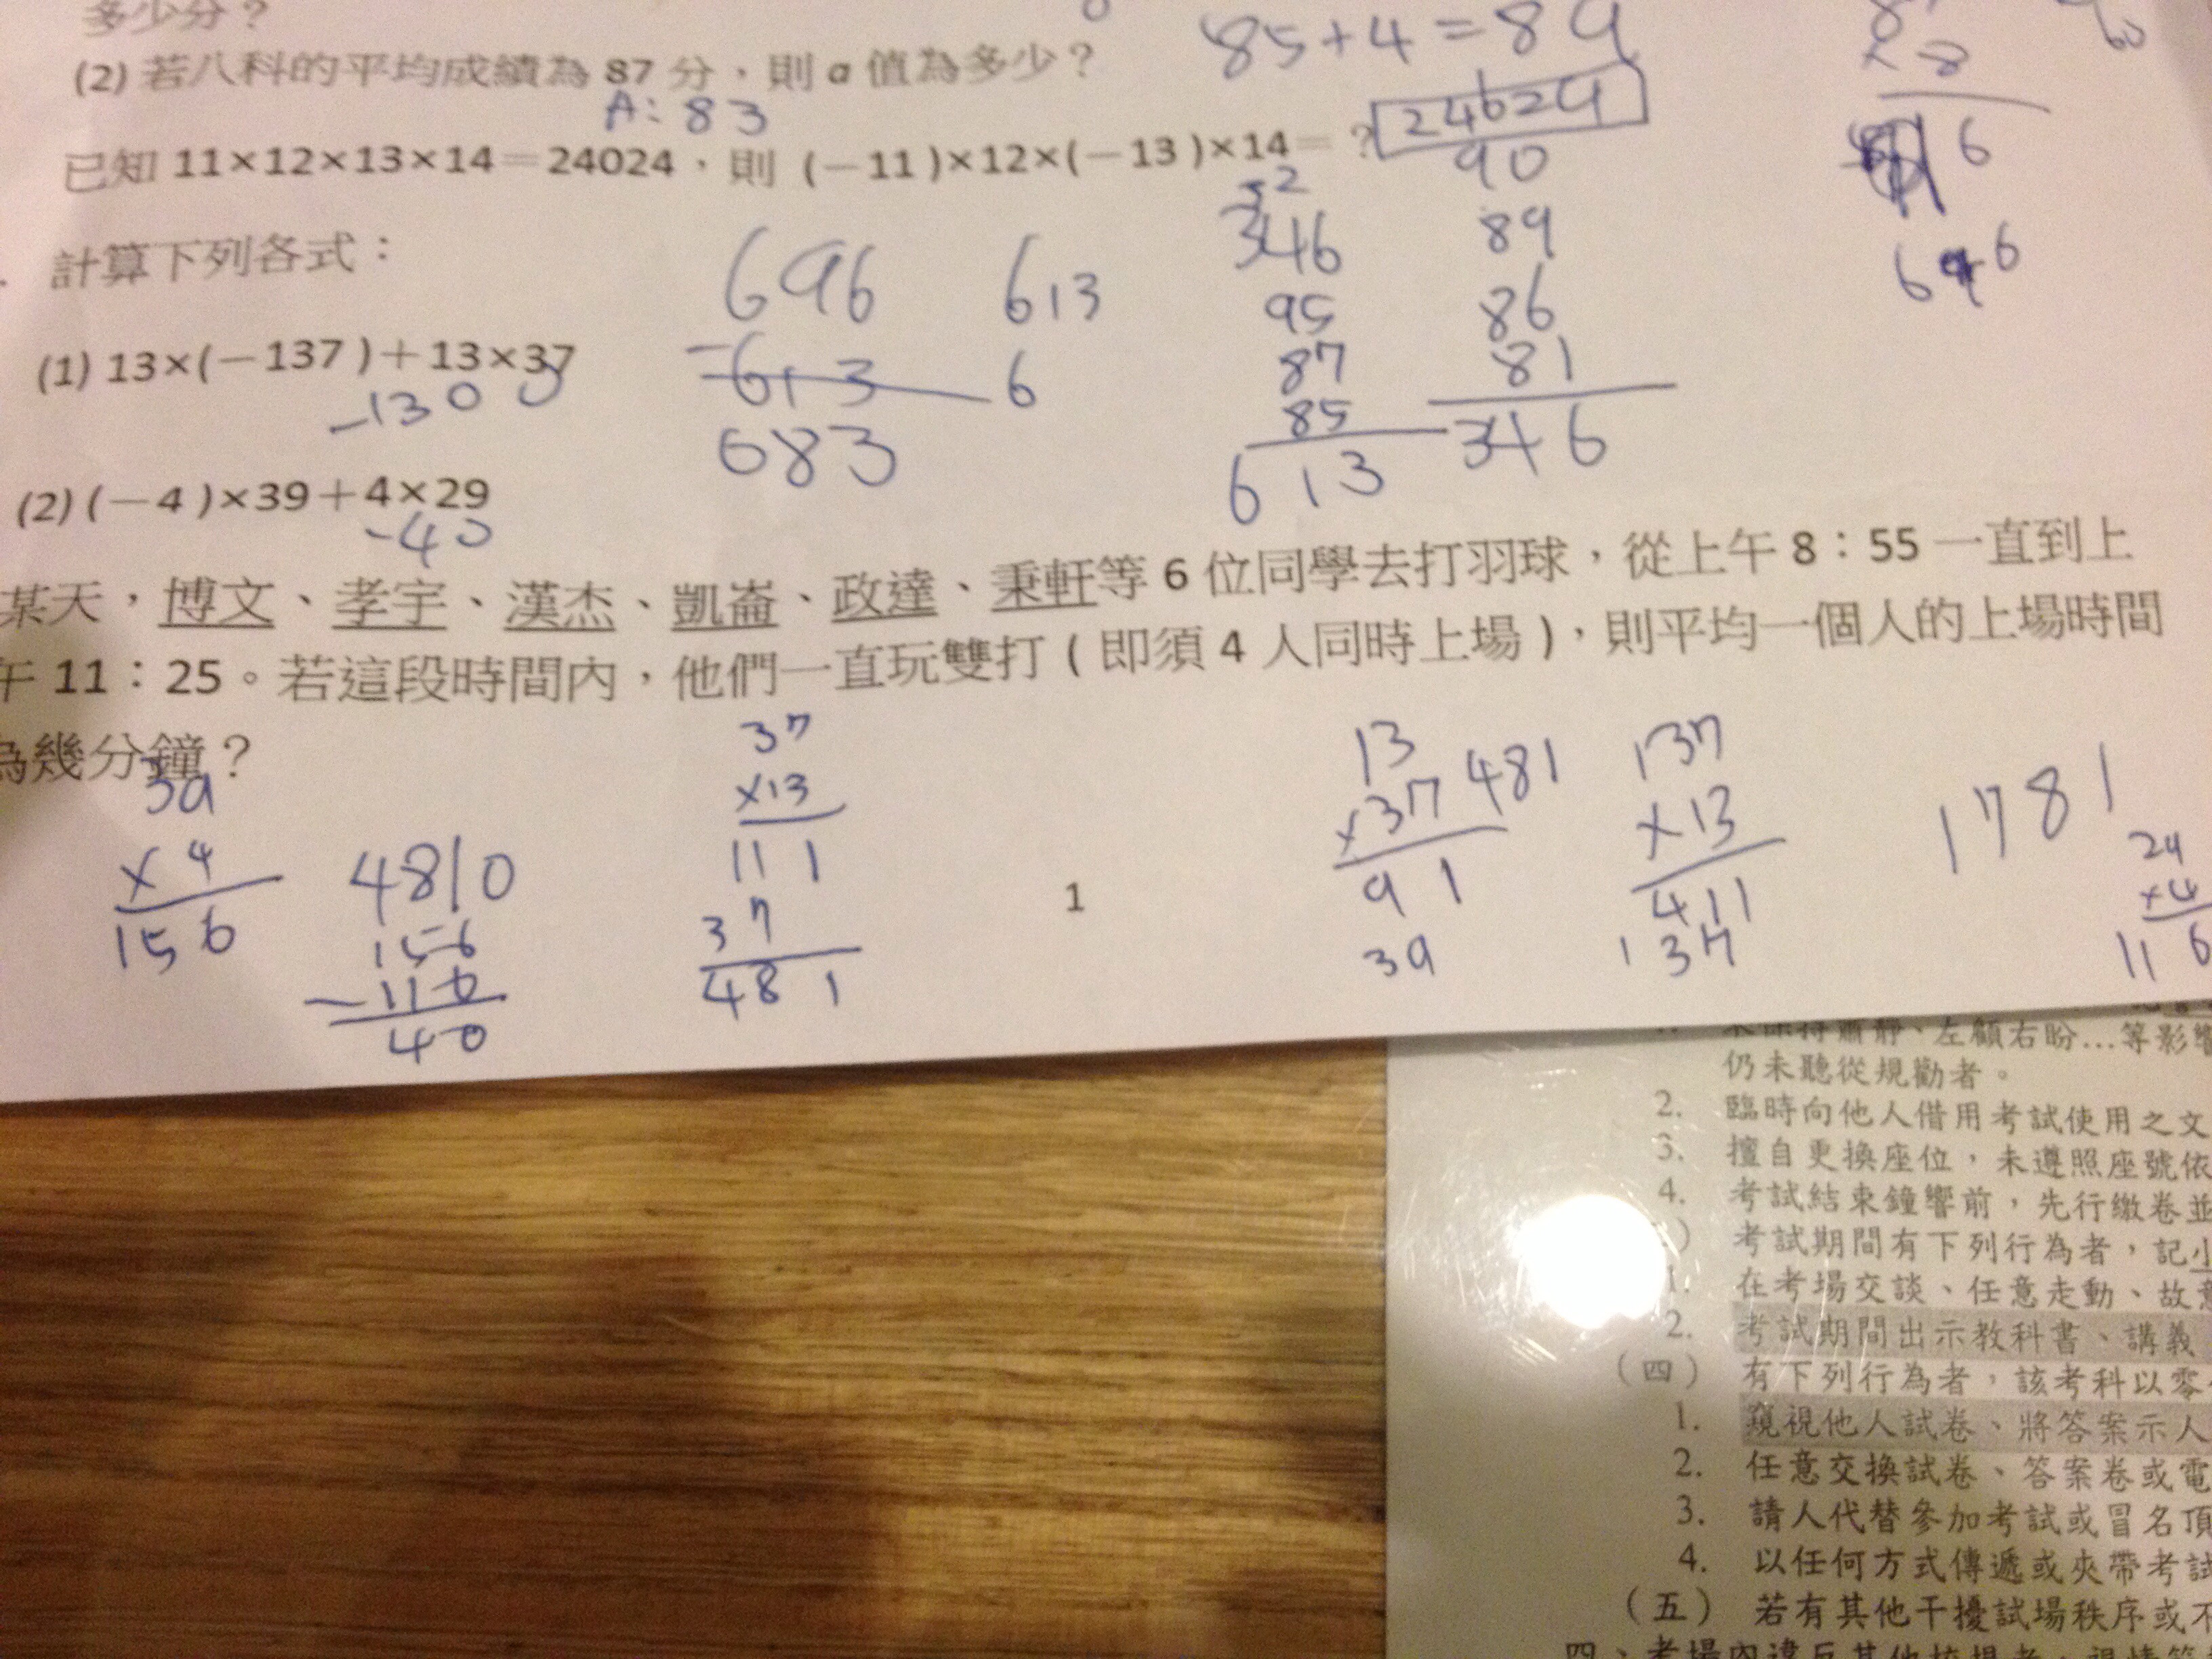 多少分？
85+4=89
(2) 若八科的平均成績為 87 分，則 a 值為多少？
A: 83
已知 11×12×13×14＝24024，則 (－11)×12×(－13)×14＝？
24624
計算下列各式：
(1) 13×(－137)＋13×37
-1300
(2) (－4)×39＋4×29
-40
696
-613
683
613
6
346
95
87
85
613
90
89
86
81
346
8
6
某天，博文、孝宇、漢杰、凱崙、政達、秉軒等 6 位同學去打羽球，從上午 8：55 一直到上
午 11：25。若這段時間內，他們一直玩雙打 (即須 4 人同時上場)，則平均一個人的上場時間
為幾分鐘？
39
×4
156
4810
156
-116
40
37
×13
111
37
481
1
13
×37
91
39
481
137
×13
411
137
1781
29
×4
116
左顧右盼…等影響
仍未聽從規勸者。
2. 臨時向他人借用考試使用之文
3. 擅自更換座位，未遵照座號依
4. 考試結束鐘響前，先行繳卷並
考試期間有下列行為者，記小
1. 在考場交談、任意走動、故意
2. 考試期間出示教科書、講義、
(四) 有下列行為者，該考科以零
1. 窺視他人試卷、將答案示人
2. 任意交換試卷、答案卷或電
3. 請人代替參加考試或冒名頂
4. 以任何方式傳遞或夾帶考試
(五) 若有其他干擾試場秩序或不